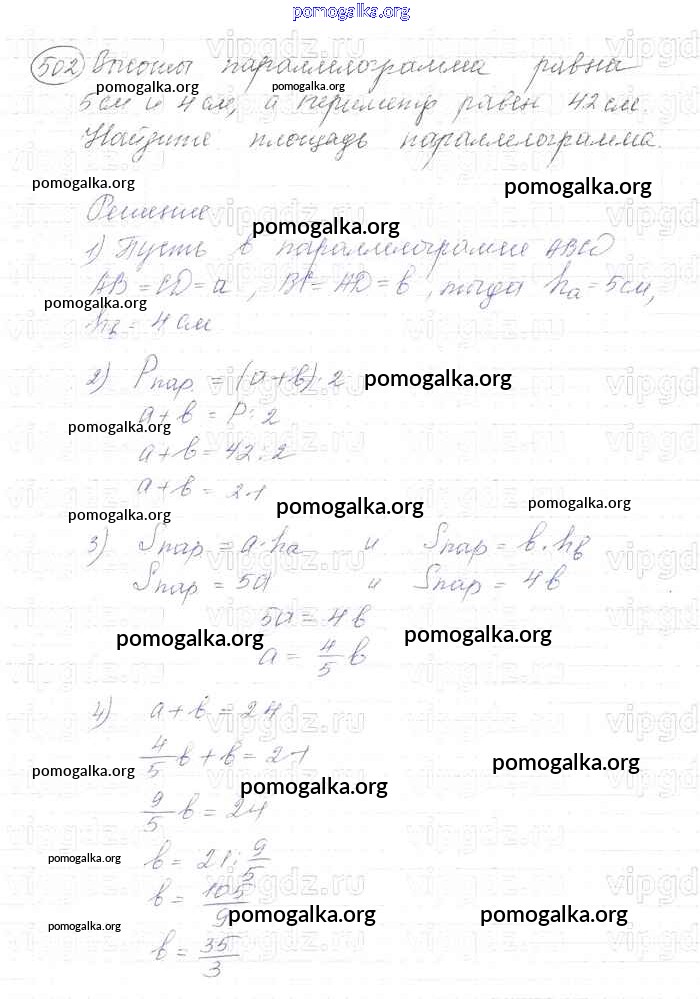 pomogalka.org
502 Высоты параллелограмма равна
pomogalka.org pomogalka.org
5см и 4см, а периметр равен 42см.
Найдите площадь параллелограмма.
pomogalka.org pomogalka.org
Решение
pomogalka.org
1) Пусть в параллелограмме ABCD
AB = CD = a, BC = AD = b, тогда ha = 5см,
pomogalka.org
hb = 4см
2) Pпар = (a+b)·2 pomogalka.org
a+b = P:2
pomogalka.org
a+b = 42:2
a+b = 21
pomogalka.org pomogalka.org pomogalka.org
3) Sпар = a·ha и Sпар = b·hb
Sпар = 5a и Sпар = 4b
5a = 4b
pomogalka.org pomogalka.org
a = 4/5 b
4) a+b = 21
4/5 b + b = 21
pomogalka.org pomogalka.org pomogalka.org
9/5 b = 21
b = 21 : 9/5
pomogalka.org
b = 105/9
pomogalka.org pomogalka.org pomogalka.org
b = 35/3